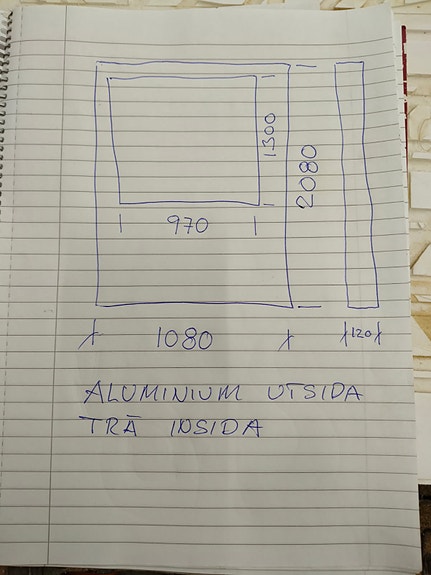 1300
2080
970
1080
120
ALUMINIUM UTSIDA
TRÄ INSIDA